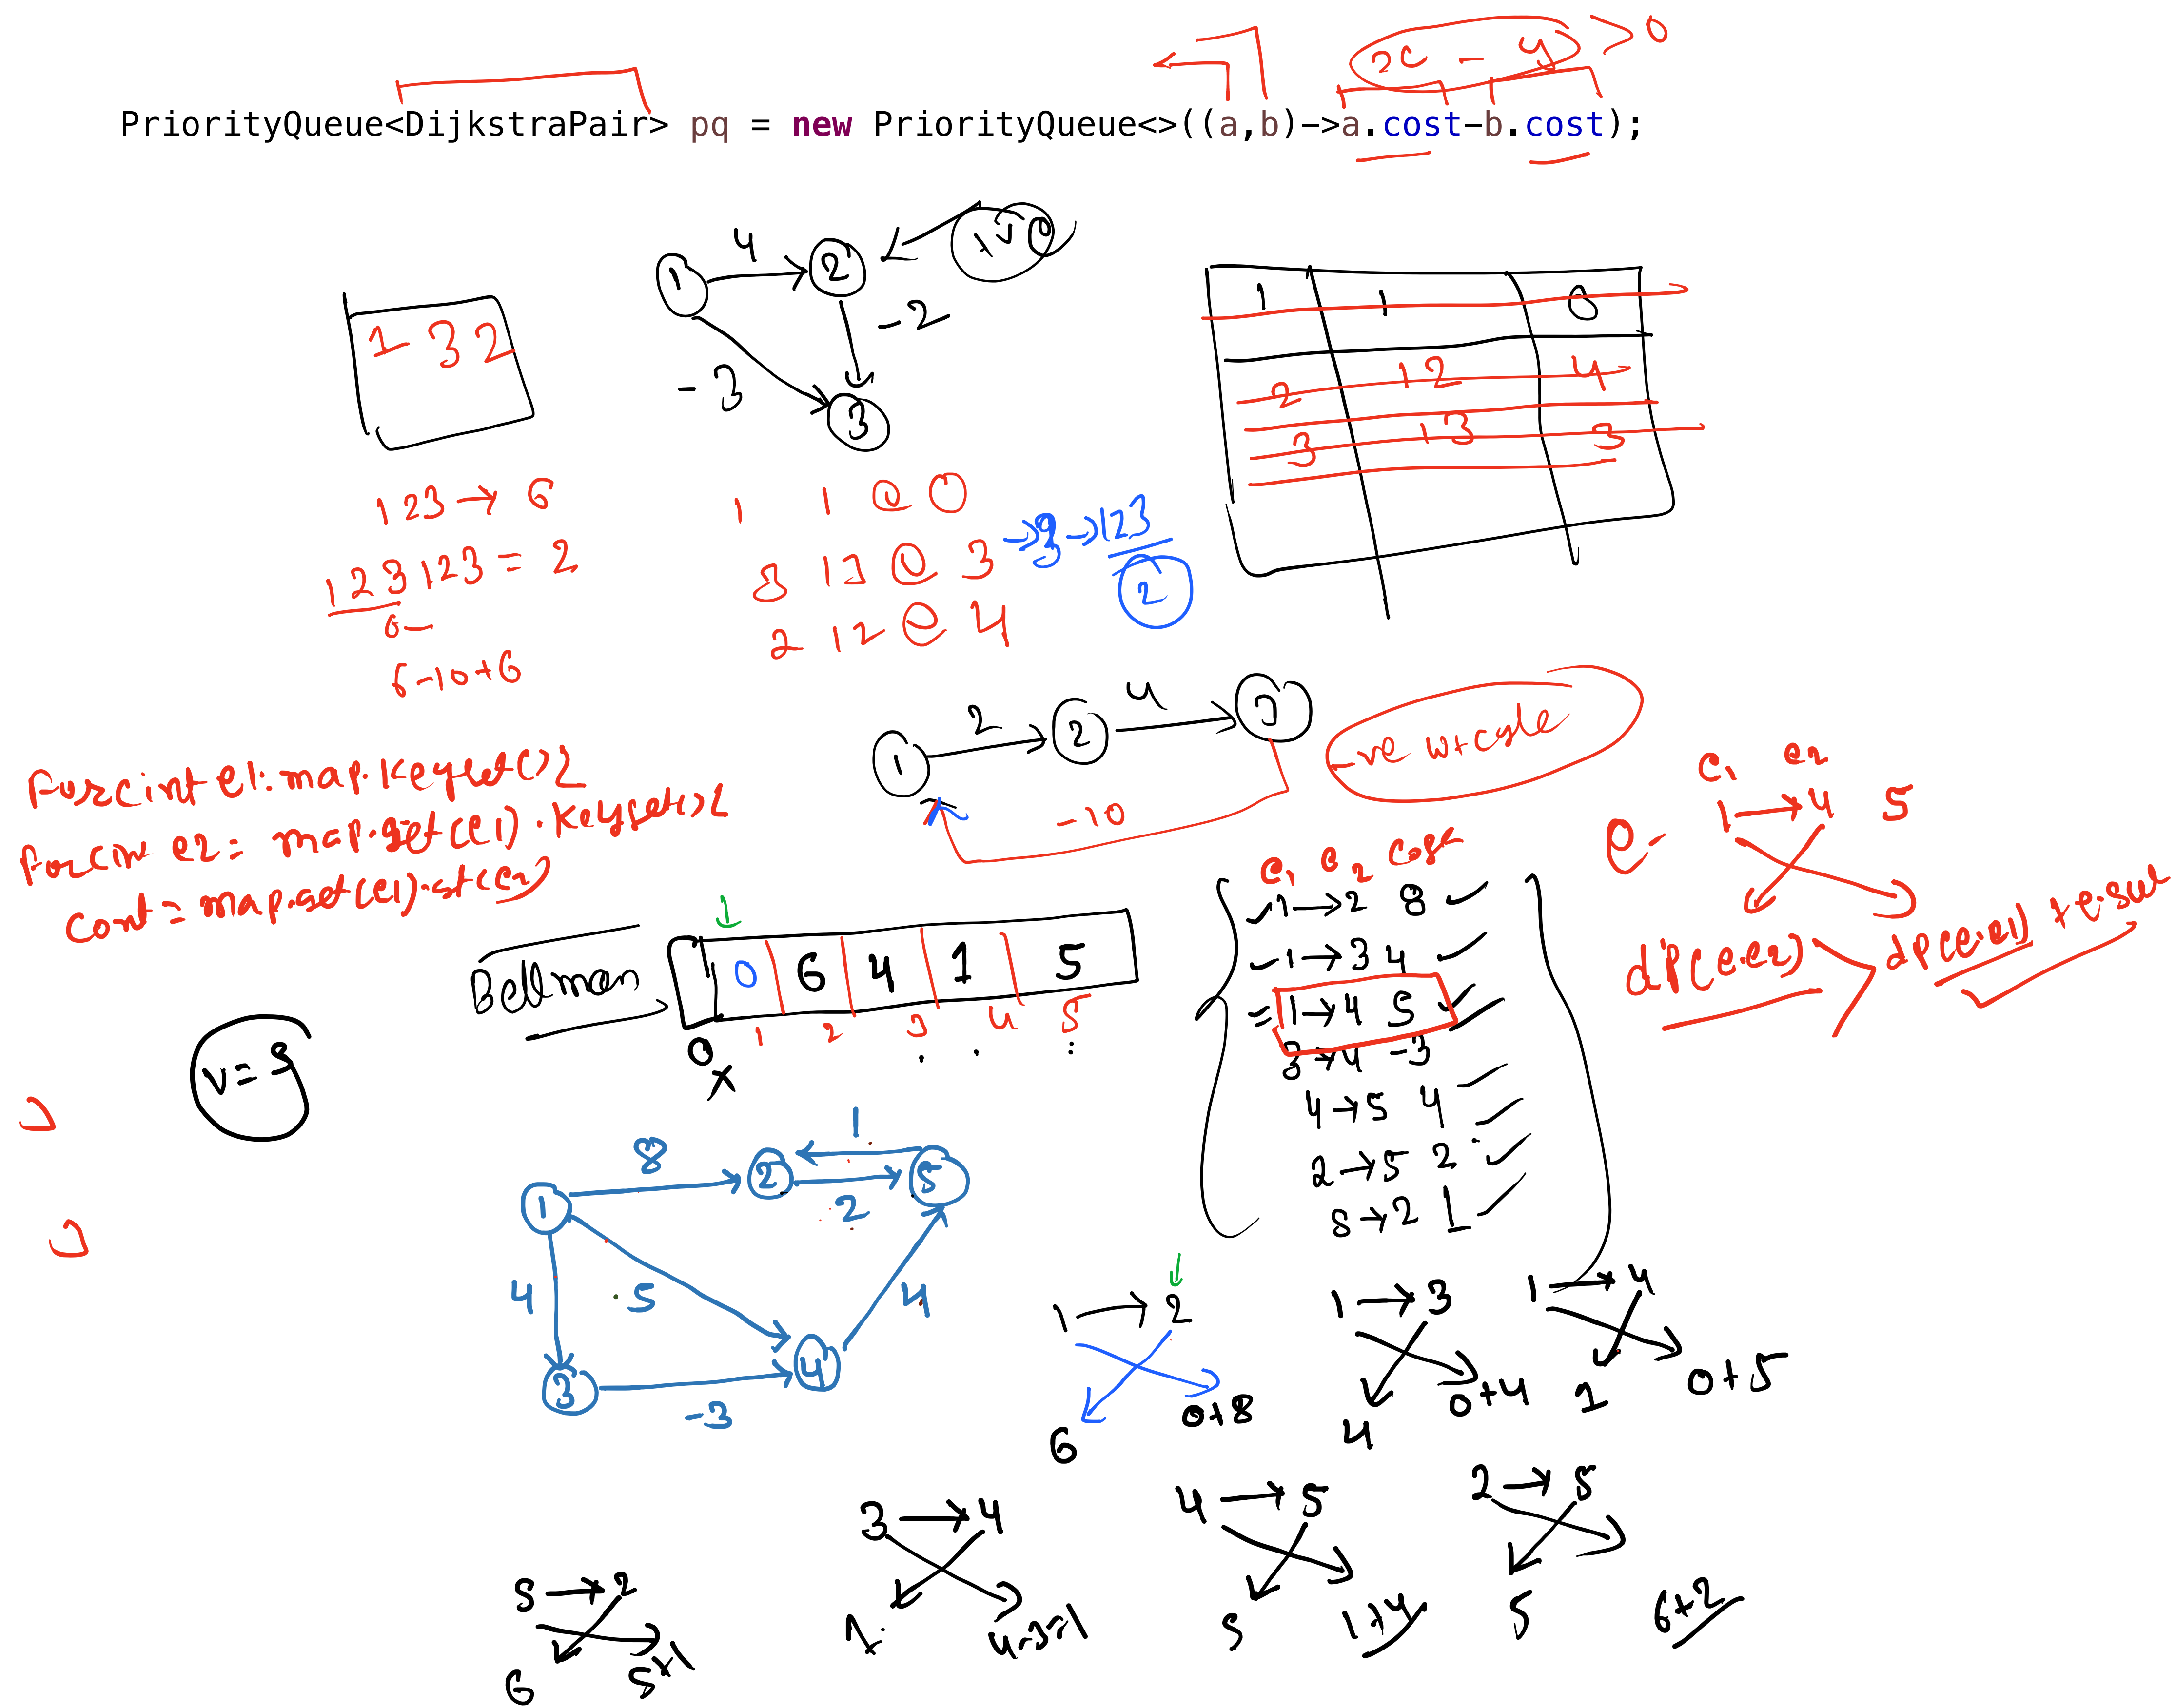 > 0
x - y
PriorityQueue<DijkstraPair> pq = new PriorityQueue<>((a,b)->a.cost-b.cost);
1 4 2
-2
-3
3
1 3 2
1 1 0
2 12 4
3 13 3
123 → 6
123123 = 2
6
6-10+6
1 1 @ 0
3 13 @ 3 → 3 → 123
2
2 12 @ 4
1 2 2 4 3
-10
-ve wt cycle
for(int e1: map.keyset()){
for(int e2: map.get(e1).keyset(){
cost = map.get(e1).get(e2)
Bellman
0 6 4 1 5
0 1 2 3 4 5
x
v=5
e1 e2 cost
1→2 8
1→3 4
1→4 5
3→4 -3
4→5 4
2→5 2
5→2 1
e1 e2
e- 1→4 5
dp[e.e2] > dp[e.e1] + e.
1 8 2 1 5
2
4 5 4
3 -3 4
1→2
6 0+8
1→3
4 0+4
1→4
1 0+5
3→4
1 4-3=1
4→5
5 1+4
2→5
5 6+2
5→2
6 5+1